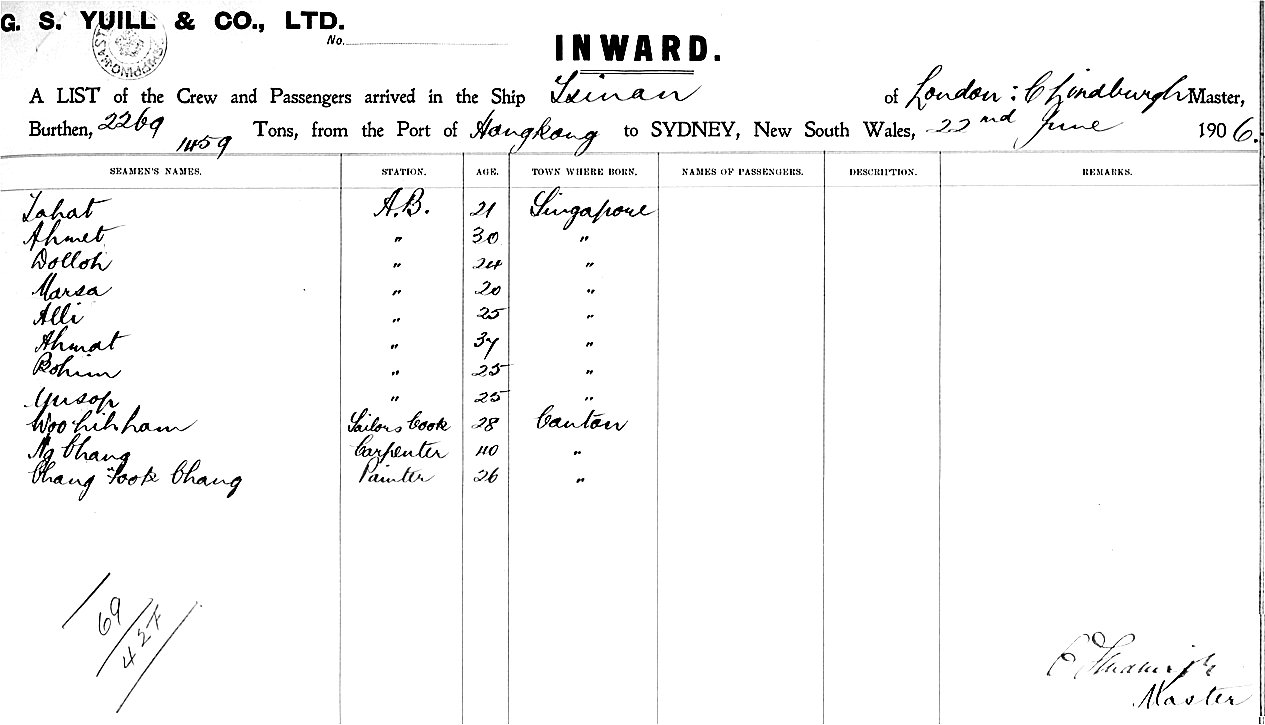 G. S. YUILL & CO., LTD.
No.
INWARD.
A LIST of the Crew and Passengers arrived in the Ship Tsinan of London: C Lindburgh Master,
Burthen, 2269 1459 Tons, from the Port of Hongkong to SYDNEY, New South Wales, 22nd June 1906.
SEAMEN'S NAMES. STATION. AGE. TOWN WHERE BORN. NAMES OF PASSENGERS. DESCRIPTION. REMARKS.
Tahat A.B. 21 Singapore
Ahmet " 30 "
Dolloh " 24 "
Marsa " 20 "
Alli " 25 "
Ahmat " 37 "
Bohim " 25 "
Yusop " 25 "
Woo Sailors Cook 28 Canton
Ng Chang Carpenter 40 "
Chang Fook Chang Painter 26 "
69
427
Master